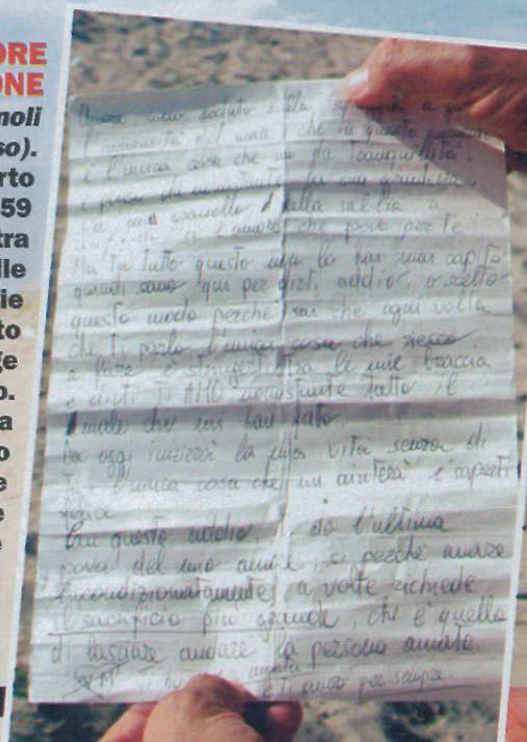 ORE
ONE
noli
so).
rto
59
tra
lle
rie
to
ge
o.
a
o
e
e
e
Amore, sono seduto sulla spiaggia a
l'immensità del mare che in questo momento
è l'unica cosa che mi da tranquillità,
e penso che nonostante la sua grandezza,
granello della sabbia
l'amore che provo per te
Ma tu tutto questo non lo hai mai capito
quindi sono qui per dirti addio, o scelto
questo modo perché sai che ogni volta
che ti parlo l'unica cosa che riesco
a fare è stringerti tra le mie braccia
e dirti TI AMO nonostante tutto il
male che mi hai fatto.
Da oggi inizierà la mia vita senza di
te l'unica cosa che mi aiuterà è saperti
felice
Con questo addio, ti do l'ultima
prova del mio amore, si perché amare
incondizionatamente, a volte richiede
il sacrificio più grande, che è quello
di lasciare andare la persona amata.
ti ho amata
e ti amerò per sempre.